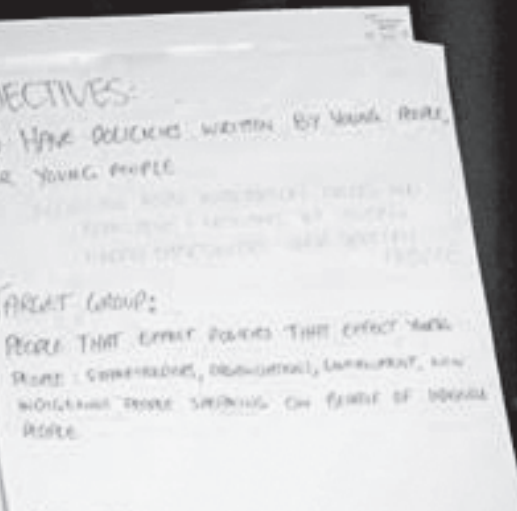 JECTIVES:
HAVE POLICIES WRITTEN BY YOUNG PEOPLE,
R YOUNG PEOPLE
TARGET GROUP:
PEOPLE THAT EFFECT POLICIES THAT EFFECT YOUNG
PEOPLE: STAKEHOLDERS, ORGANISATIONS, GOVERNMENT, NON
INDIGENOUS PEOPLE SPEAKING ON BEHALF OF
PEOPLE